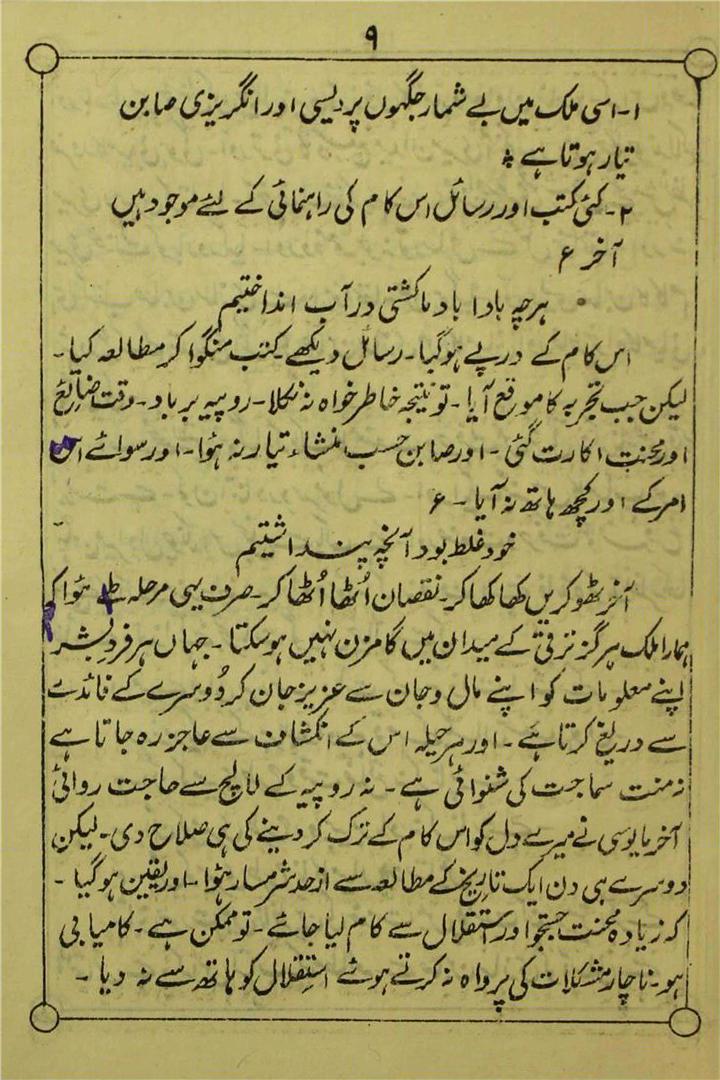 ۹
۱- اسی ملک میں بے شمار جگہوں پر دیسی اور انگریزی صابن
تیار ہوتا ہے *
۲- کئی کتب اور رسائل اس کام کی راہنمائی کے لئے موجود ہیں
آخر ع
ہرچہ بادا باد ما کشتی در آب انداختیم
اس کام کے درپے ہوگیا۔ رسائل دیکھے کتب منگوا کر مطالعہ کیا۔
لیکن جب تجربہ کا موقع آیا۔ تو نتیجہ خاطر خواہ نہ نکلا۔ روپیہ برباد۔ وقت ضایع
اور محنت اکارت گئی۔ اور صابن حسب منشاء تیار نہ ہؤا۔ اور سوائے اس
امر کے اور کچھ ہاتھ نہ آیا۔ ع
خود غلط بود آنچہ پنداشتیم
آخر ٹھوکریں کھا کھا کر۔ نقصان اُٹھا اُٹھا کر۔ صرف یہی مرحلہ طے ہؤا کہ
ہمارا ملک ہرگز ترقی کے میدان میں گامزن نہیں ہوسکتا۔ جہاں ہر فرد بشر
اپنے معلومات کو اپنے مال و جان سے عزیز جان کر دُوسرے کے فائدے
سے دریغ کرتا ہے۔ اور ہر حیلہ اس کے انکشاف سے عاجز رہ جاتا ہے
نہ منت سماجت کی شنوائی ہے۔ نہ روپیہ کے لالچ سے حاجت روائی
آخر مایوسی نے میرے دل کو اس کام کے ترک کر دینے کی ہی صلاح دی۔ لیکن
دوسرے ہی دن ایک تاریخ کے مطالعہ سے از حد شرمسار ہؤا۔ اور یقین ہوگیا۔
کہ زیادہ محنت جستجو اور استقلال سے کام لیا جائے۔ تو ممکن ہے۔ کامیابی
ہو۔ ناچار مشکلات کی پرواہ نہ کرتے ہوئے استقلال کو ہاتھ سے نہ دیا۔